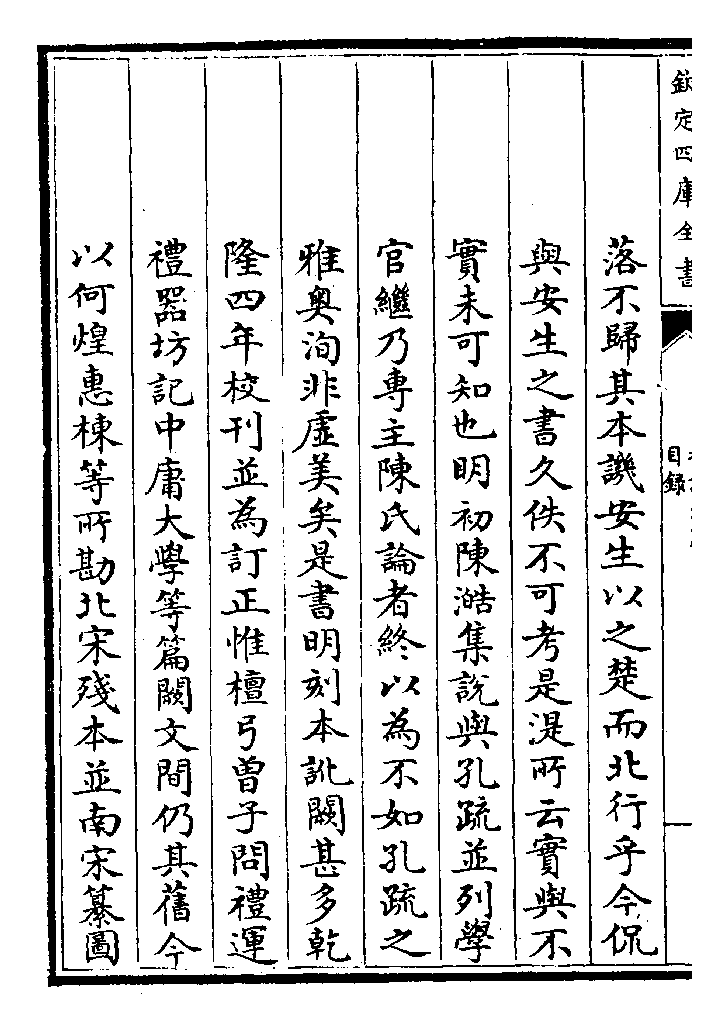 欽定四庫全書
目錄
落不歸其本譏安生以之楚而北行乎今侃
與安生之書久佚不可考是湜所云實與不
實未可知也明初陳澔集說與孔疏並列學
官繼乃專主陳氏論者終以為不如孔疏之
雅奧洵非虛美矣是書明刻本訛闕甚多乾
隆四年校刊並為訂正惟檀弓曾子問禮運
禮器坊記中庸大學等篇闕文間仍其舊今
以何煌惠棟等所勘北宋殘本並南宋纂圖